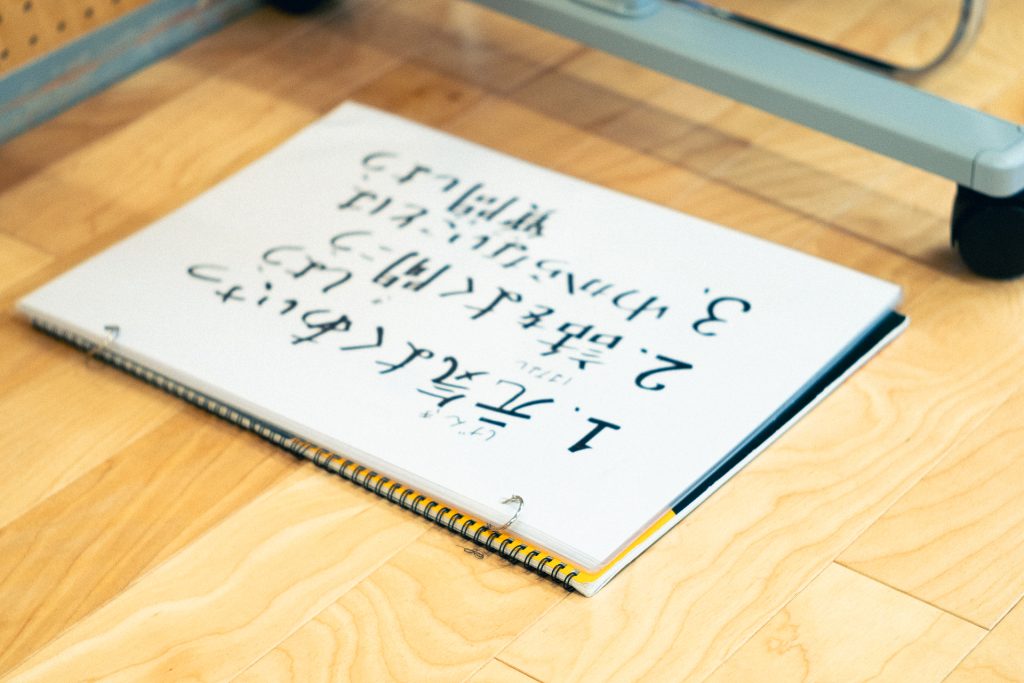 げんき
1. 元気よくあいさつ
しよう
はなし
2. 話をよく聞こう
3. わからないことは
質問しよう